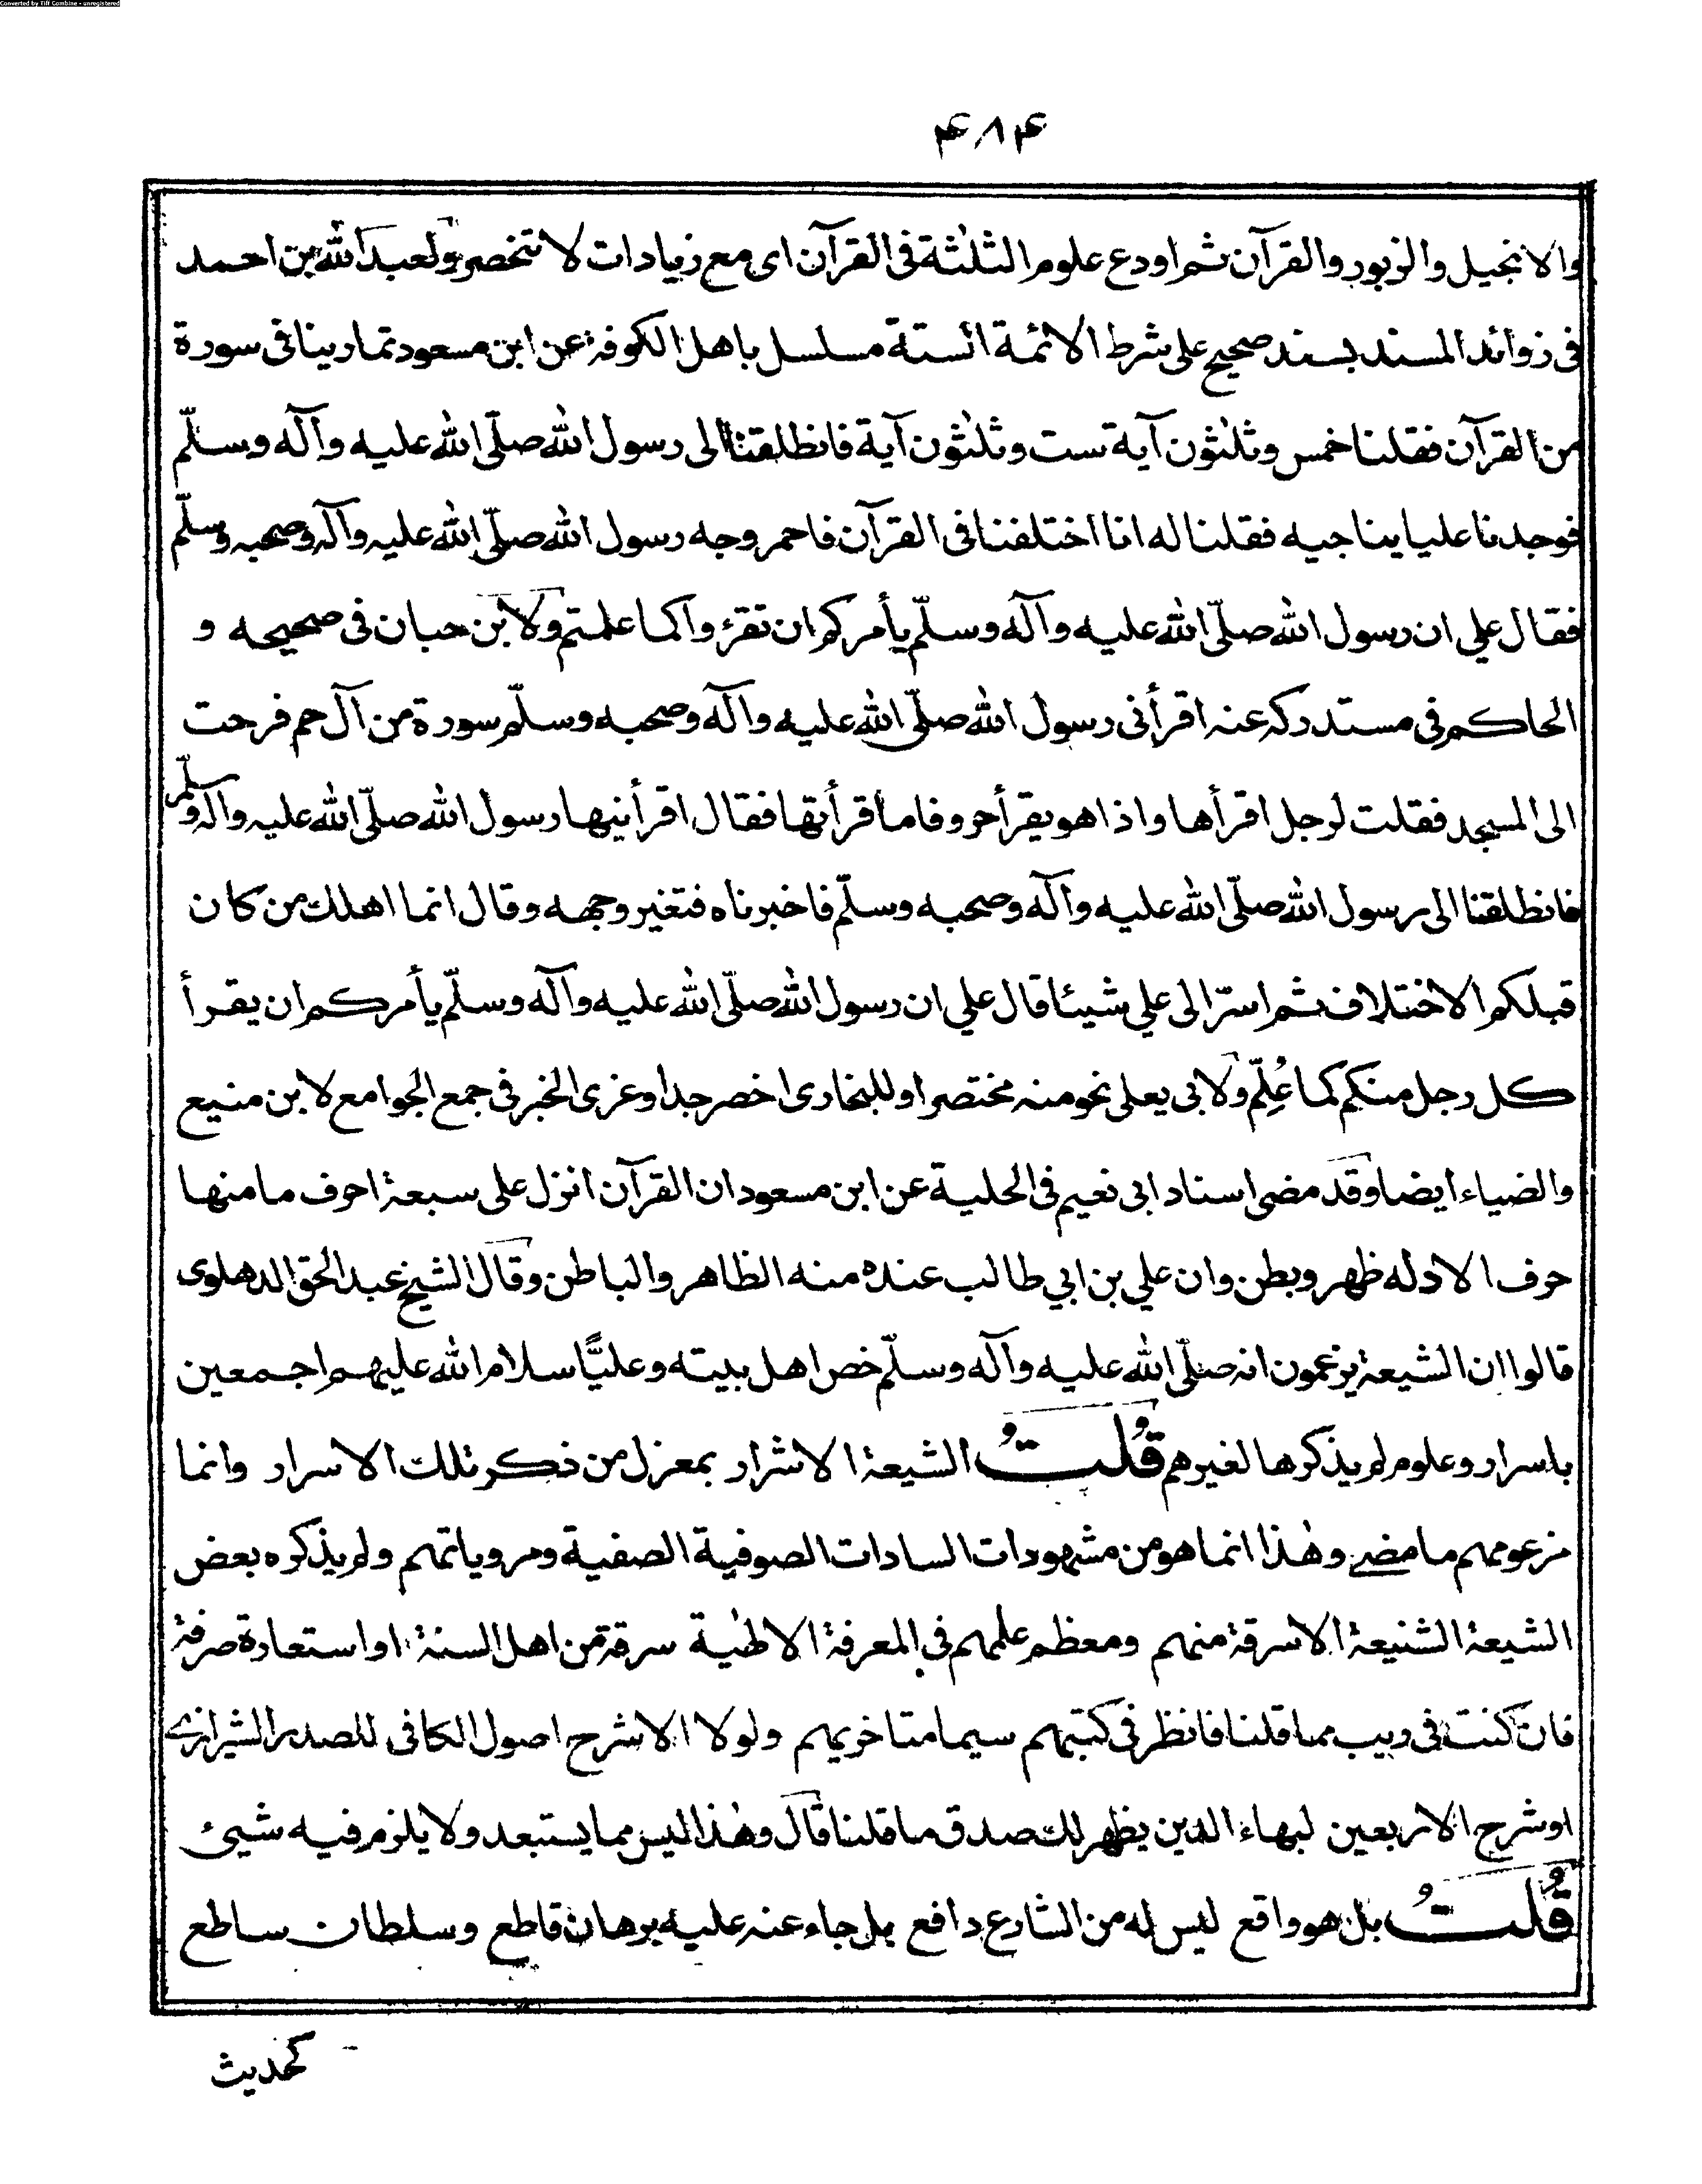 Converted by Tiff Combine - unregistered
۴۸۴
والانجيل والزبور والقرآن ثم اودع علوم الثلثة فى القرآن اى مع زيادات لا تنحصر ولعبد الله بن احمد
فى زوائد المسند بسند صحيح على شرط الائمة الستة مسلسل باهل الكوفة عن ابن مسعود تمارينا فى سورة
من القرآن فقلنا خمس وثلثون آية ست وثلثون آية فانطلقنا الى رسول الله صلّى الله عليه وآله وسلّم
فوجدنا عليا يناجيه فقلنا له انا اختلفنا فى القرآن فاحمر وجه رسول الله صلّى الله عليه وآله وصحبه وسلّم
فقال علي ان رسول الله صلّى الله عليه وآله وسلّم يأمركم ان تقرءوا كما علمتم ولابن حبان فى صحيحه و
الحاكم فى مستدركه عنه اقرأنى رسول الله صلّى الله عليه وآله وصحبه وسلّم سورة من آل حم فرحت
الى المسجد فقلت لرجل اقرأها واذا هو يقرأ حروفا ما اقرأتها فقال اقرأنيها رسول الله صلّى الله عليه وآله وسلّم
فانطلقنا الى رسول الله صلّى الله عليه وآله وصحبه وسلّم فاخبرناه فتغير وجهه وقال انما اهلك من كان
قبلكم الاختلاف ثم اسرّ الى علي شيئا قال علي ان رسول الله صلّى الله عليه وآله وسلّم يأمركم ان يقرأ
كل رجل منكم كما عُلِّم ولابى يعلى نحو منه مختصرا وللبخارى اخصر جدا وعزى الخبر فى جمع الجوامع لابن منيع
والضياء ايضا وقد مضى اسناد ابى نعيم فى الحلية عن ابن مسعود ان القرآن انزل على سبعة احرف ما منها
حرف الا وله ظهر وبطن وان علي بن ابي طالب عنده منه الظاهر والباطن وقال الشيخ عبد الحق الدهلوى
قالوا ان الشيعة يزعمون انه صلّى الله عليه وآله وسلّم خص اهل بيته وعليًّا سلام الله عليهم اجمعين
باسرار وعلوم لم يذكرها لغيرهم قُلتُ الشيعة الاشرار بمعزل من ذكر تلك الاسرار وانما
مزعومهم ما مضى وهٰذا انما هو من مشهودات السادات الصوفية الصفية ومروياتهم ولم يذكره بعض
الشيعة الشنيعة الا سرقة منهم ومعظم علمهم فى المعرفة الالٰهية سرقة من اهل السنة او استعادة صرفة
فان كنت فى ريب مما قلنا فانظر فى كتبهم سيما متاخريهم ولولا الا شرح اصول الكافى للصدر الشيرازى
او شرح الاربعين لبهاء الدين يظهر لك صدق ما قلنا قال وهٰذا ليس مما يستبعد ولا يلزم فيه شيئ
قُلتُ بل هو واقع ليس له من الشارع دافع بل جاء عنه عليه برهان قاطع وسلطان ساطع
كحديث